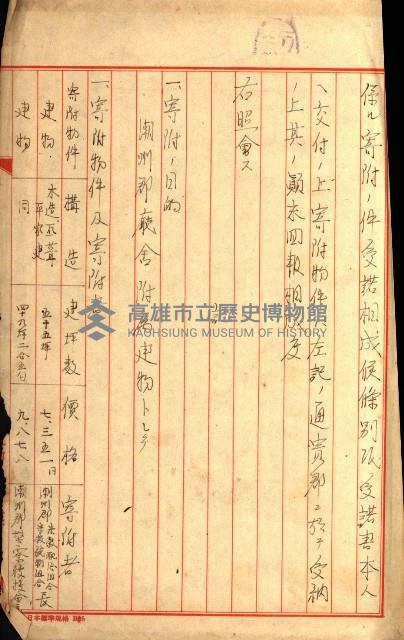 係ル寄附ノ件受諾相成候條別紙受諾書本人
ヘ交付ノ上寄附物件左記ノ通貴郡ニ於テ受納
ノ上其ノ顛末回報相
度
右照會ス
記
一、寄附ノ目的
潮州郡廳舍附屬建物トシテ
一、寄附物件及寄附者
寄附物件 構造 建坪數 價格 寄附者
建物 木造瓦葺平家建 五十五坪 七、三五一円 潮州郡 組合長
建物 同 四十九坪二合五勺 九、八七八 潮州郡警察後援會
高雄市立歷史博物館
KAOHSIUNG MUSEUM OF HISTORY
日本標準規格 B5